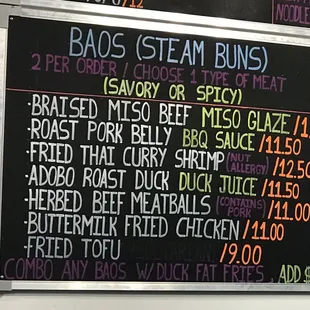 /12
NOODLES
BAOS (STEAM BUNS)
2 PER ORDER / CHOOSE 1 TYPE OF MEAT
(SAVORY OR SPICY)
·BRAISED MISO BEEF MISO GLAZE /1
·ROAST PORK BELLY BBQ SAUCE /11.50
·FRIED THAI CURRY SHRIMP (NUT ALLERGY) /12.50
·ADOBO ROAST DUCK DUCK JUICE /11.50
·HERBED BEEF MEATBALLS (CONTAINS PORK) /11.00
·BUTTERMILK FRIED CHICKEN /11.00
·FRIED TOFU /9.00
COMBO ANY BAOS W/DUCK FAT FRIES . ADD $